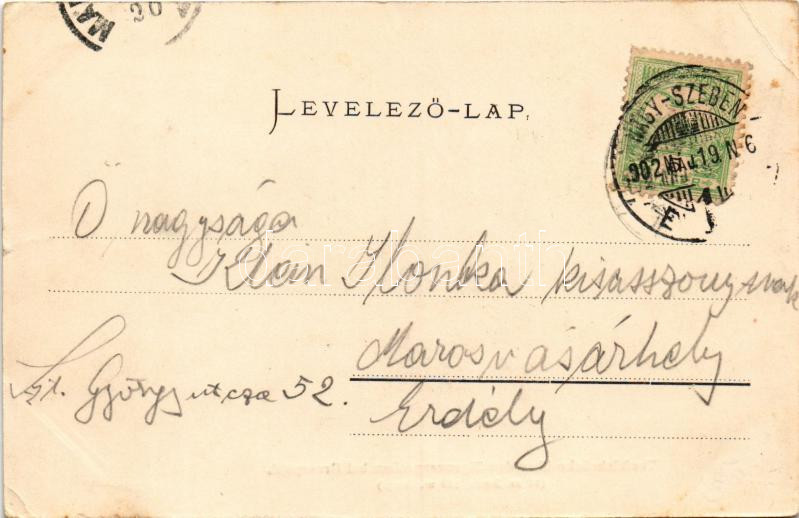 MA
20
LEVELEZŐ-LAP.
NAGY-SZEBEN
902 MÁJ 19 N 6
Ő nagysága
Klein Ilonka kisasszonynak
Marosvásárhely
Szt. György utcza 52.
Erdély
darabanth